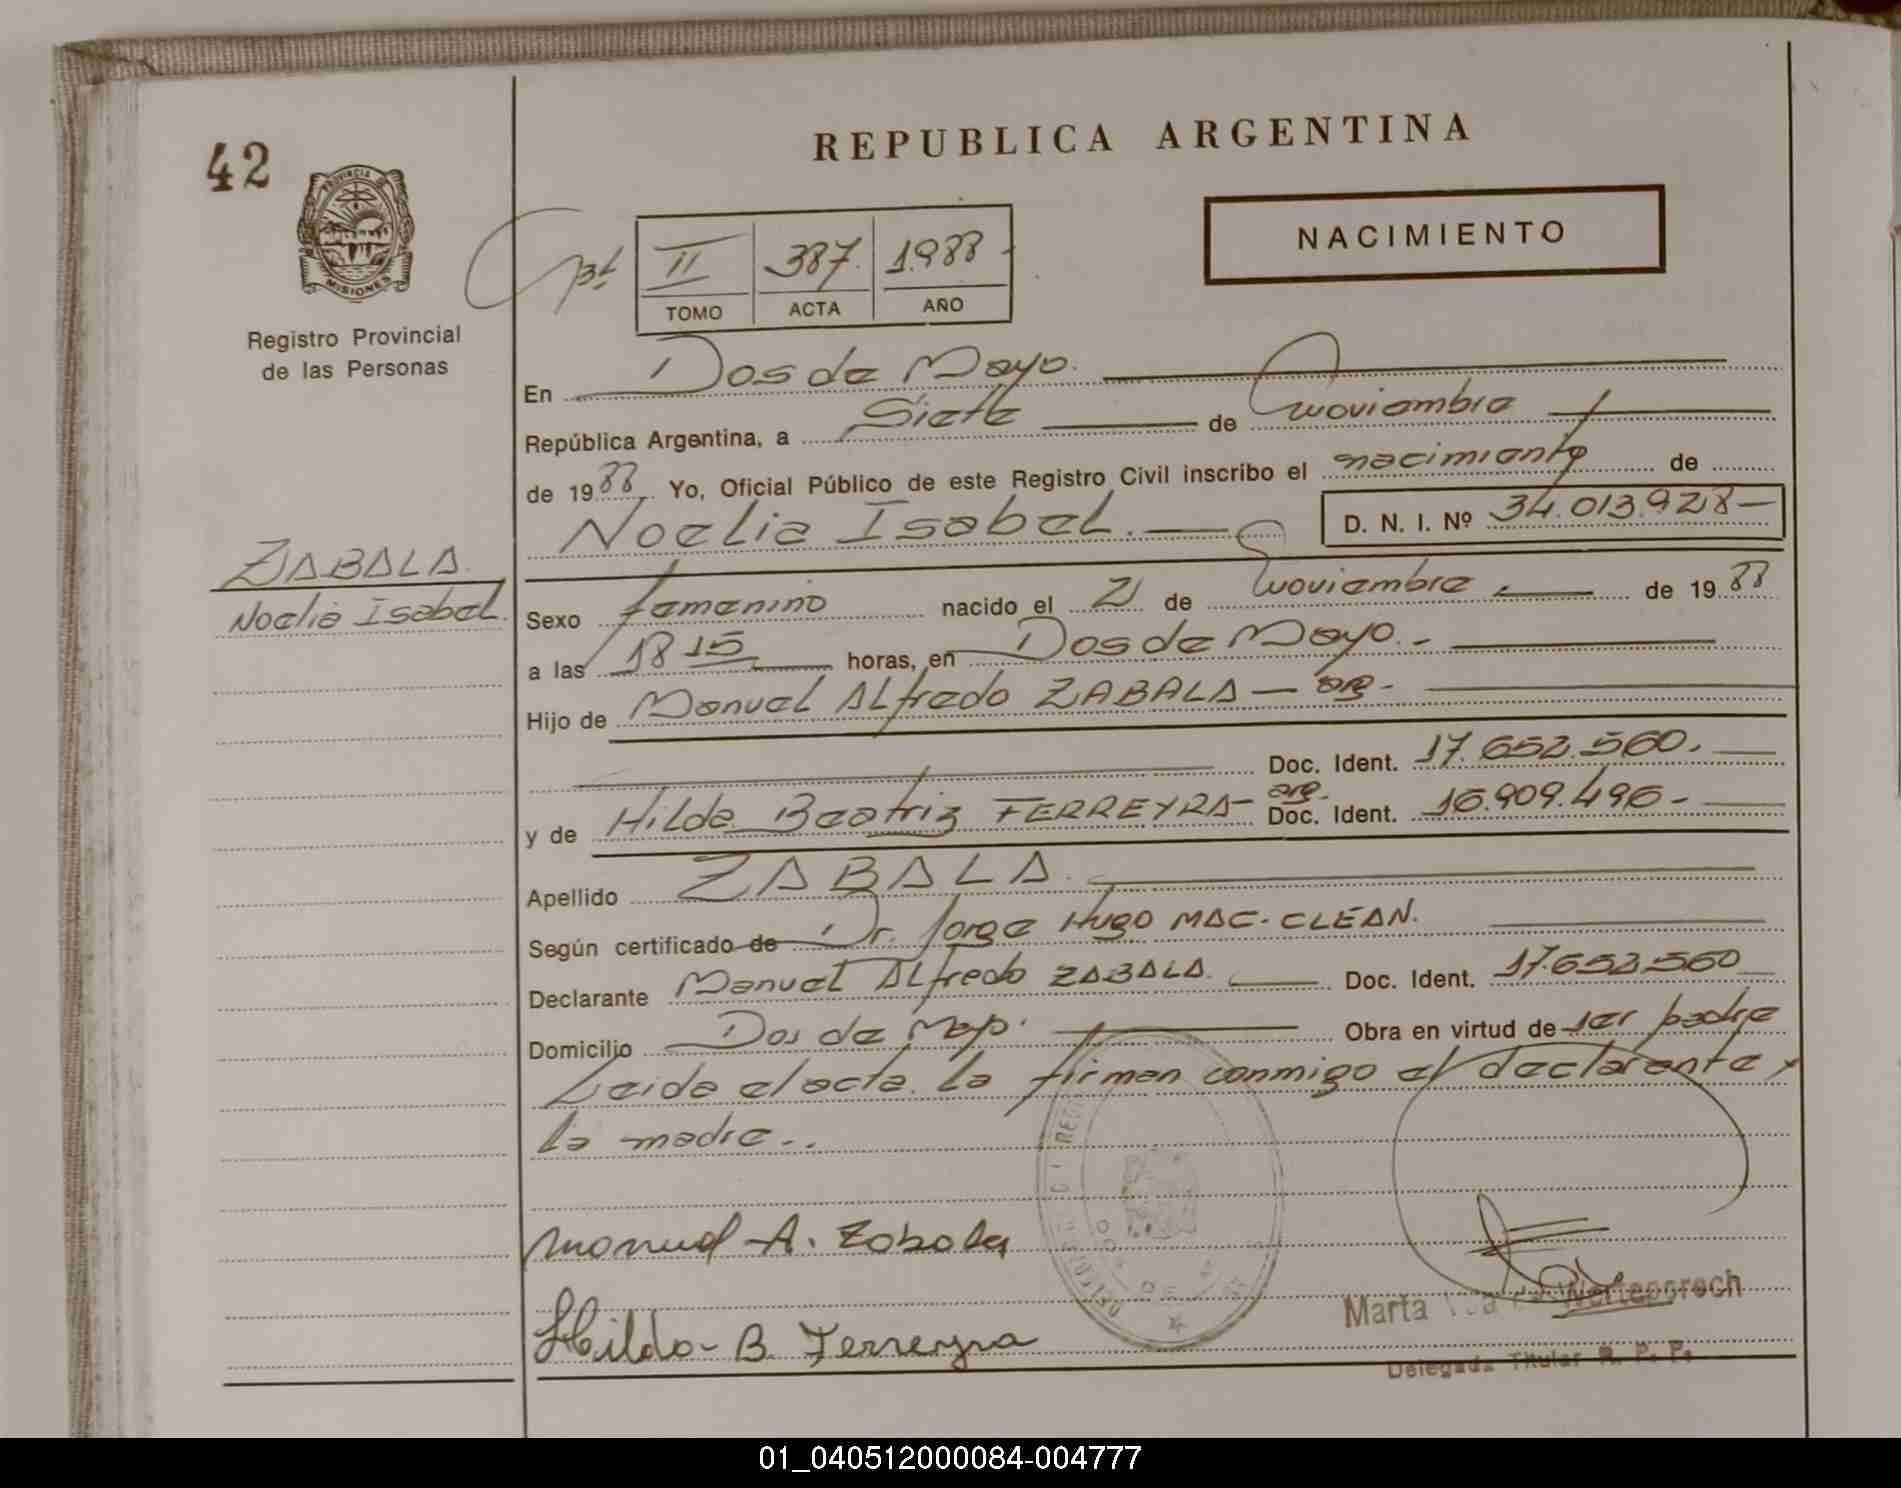 REPUBLICA ARGENTINA
42
PROVINCIA DE
MISIONES
Registro Provincial
de las Personas
NACIMIENTO
II 387. 1.988-
TOMO ACTA AÑO
En Dos de Mayo.
República Argentina, a Siete de noviembre
de 1988 Yo, Oficial Público de este Registro Civil inscribo el nacimiento de
Noelia Isabel. D. N. I. Nº 34.013.928-
ZABALA
Noelia Isabel.
Sexo femenino nacido el 2 de noviembre de 1988
a las 18 15 horas, en Dos de Mayo.-
Hijo de Manuel Alfredo ZABALA - arg-
Doc. Ident. 17.652.560.
y de Hilda Beatriz FERREYRA- arg- Doc. Ident. 16.909.496-
Apellido ZABALA.
Según certificado de Dr. Jorge Hugo MAC-CLEAN.
Declarante Manuel Alfredo ZABALA. Doc. Ident. 17.652.560
Domicilio Dos de Mayo. Obra en virtud de ser padre
Leida el acta la firman conmigo el declarante y
la madre..
Manuel A. Zabala
Hilda B. Ferreyra
Marta
Delegada Titular R. P. P.
01_040512000084-004777